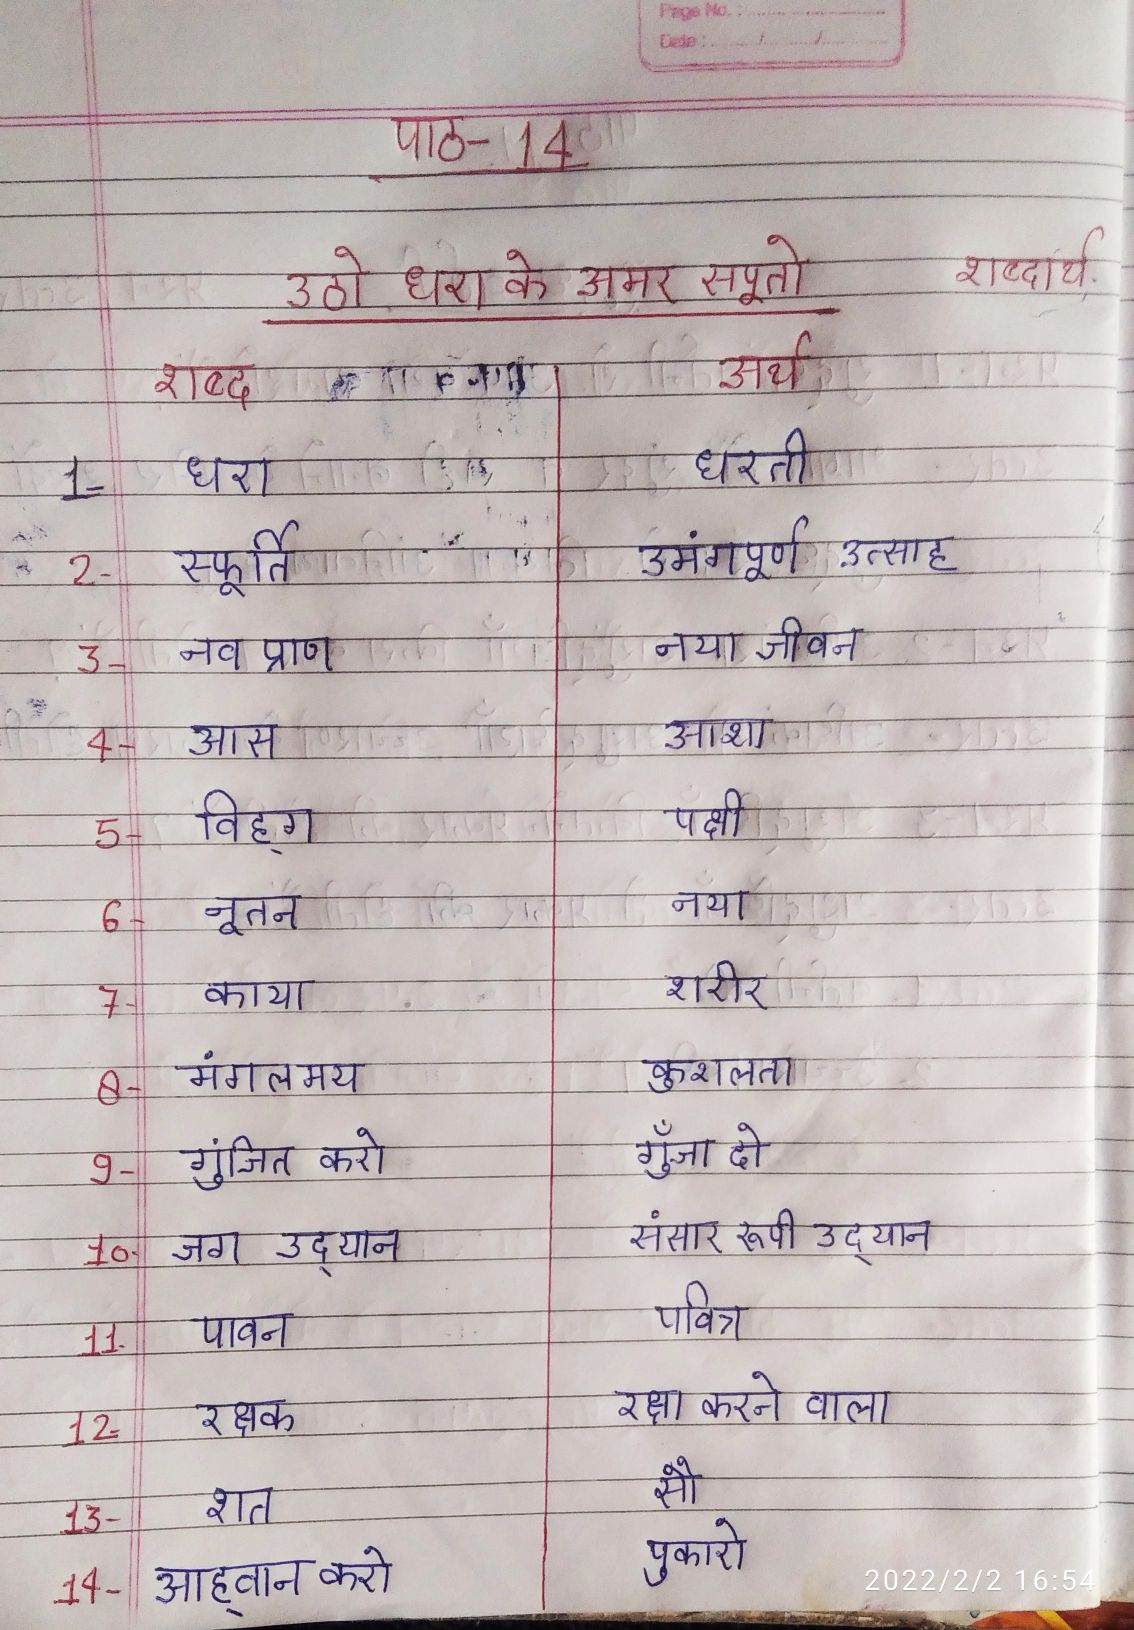 Page No. :
Date : / /
पाठ- 14
उठो धरा के अमर सपूतो शब्दार्थ.
शब्द अर्थ
1- धरा धरती
2- स्फूर्ति उमंगपूर्ण उत्साह
3- नव प्राण नया जीवन
4- आस आशा
5- विह्ग पक्षी
6- नूतन नया
7- काया शरीर
8- मंगलमय कुशलता
9- गुंजित करो गुँजा दो
10. जग उद्‌यान संसार रूपी उद्‌यान
11. पावन पवित्र
12- रक्षक रक्षा करने वाला
13- शत सौ
14- आह्‌वान करो पुकारो
2022/2/2 16:54